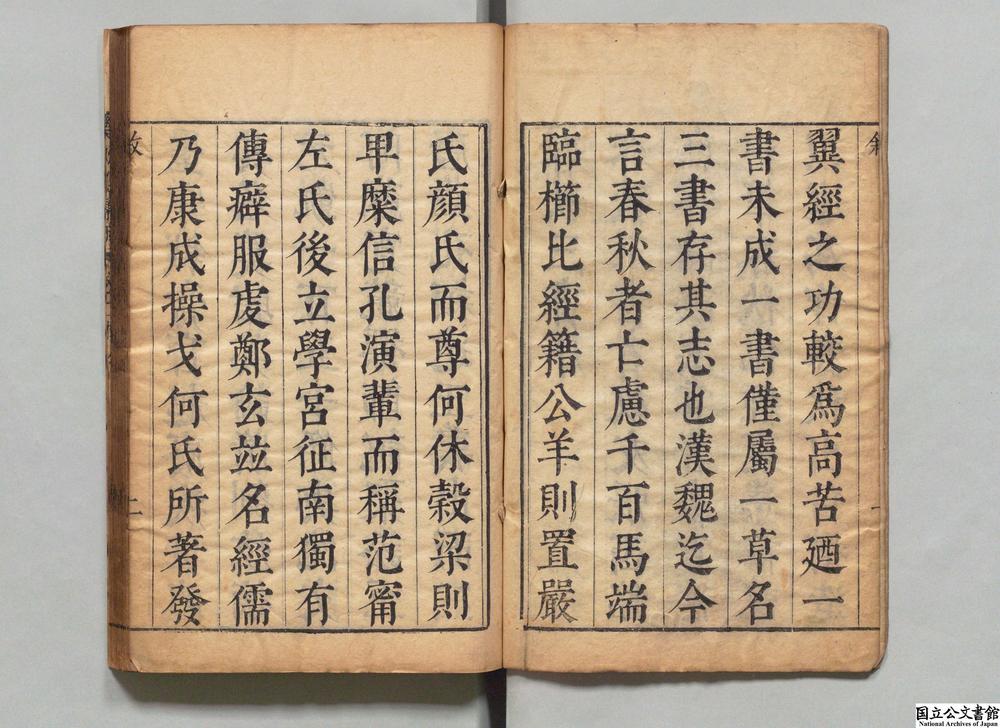 翼經之功較爲高苦廼一
書未成一書僅屬一草名
三書存其志也漢魏迄今
言春秋者亡慮千百馬端
臨櫛比經籍公羊則置嚴
氏顔氏而尊何休榖梁則
畀糜信孔演輩而稱范甯
左氏後立學宮征南獨有
傳癖服虔鄭玄竝名經儒
乃康成操戈何氏所著發
二
国立公文書館
National Archives of Japan